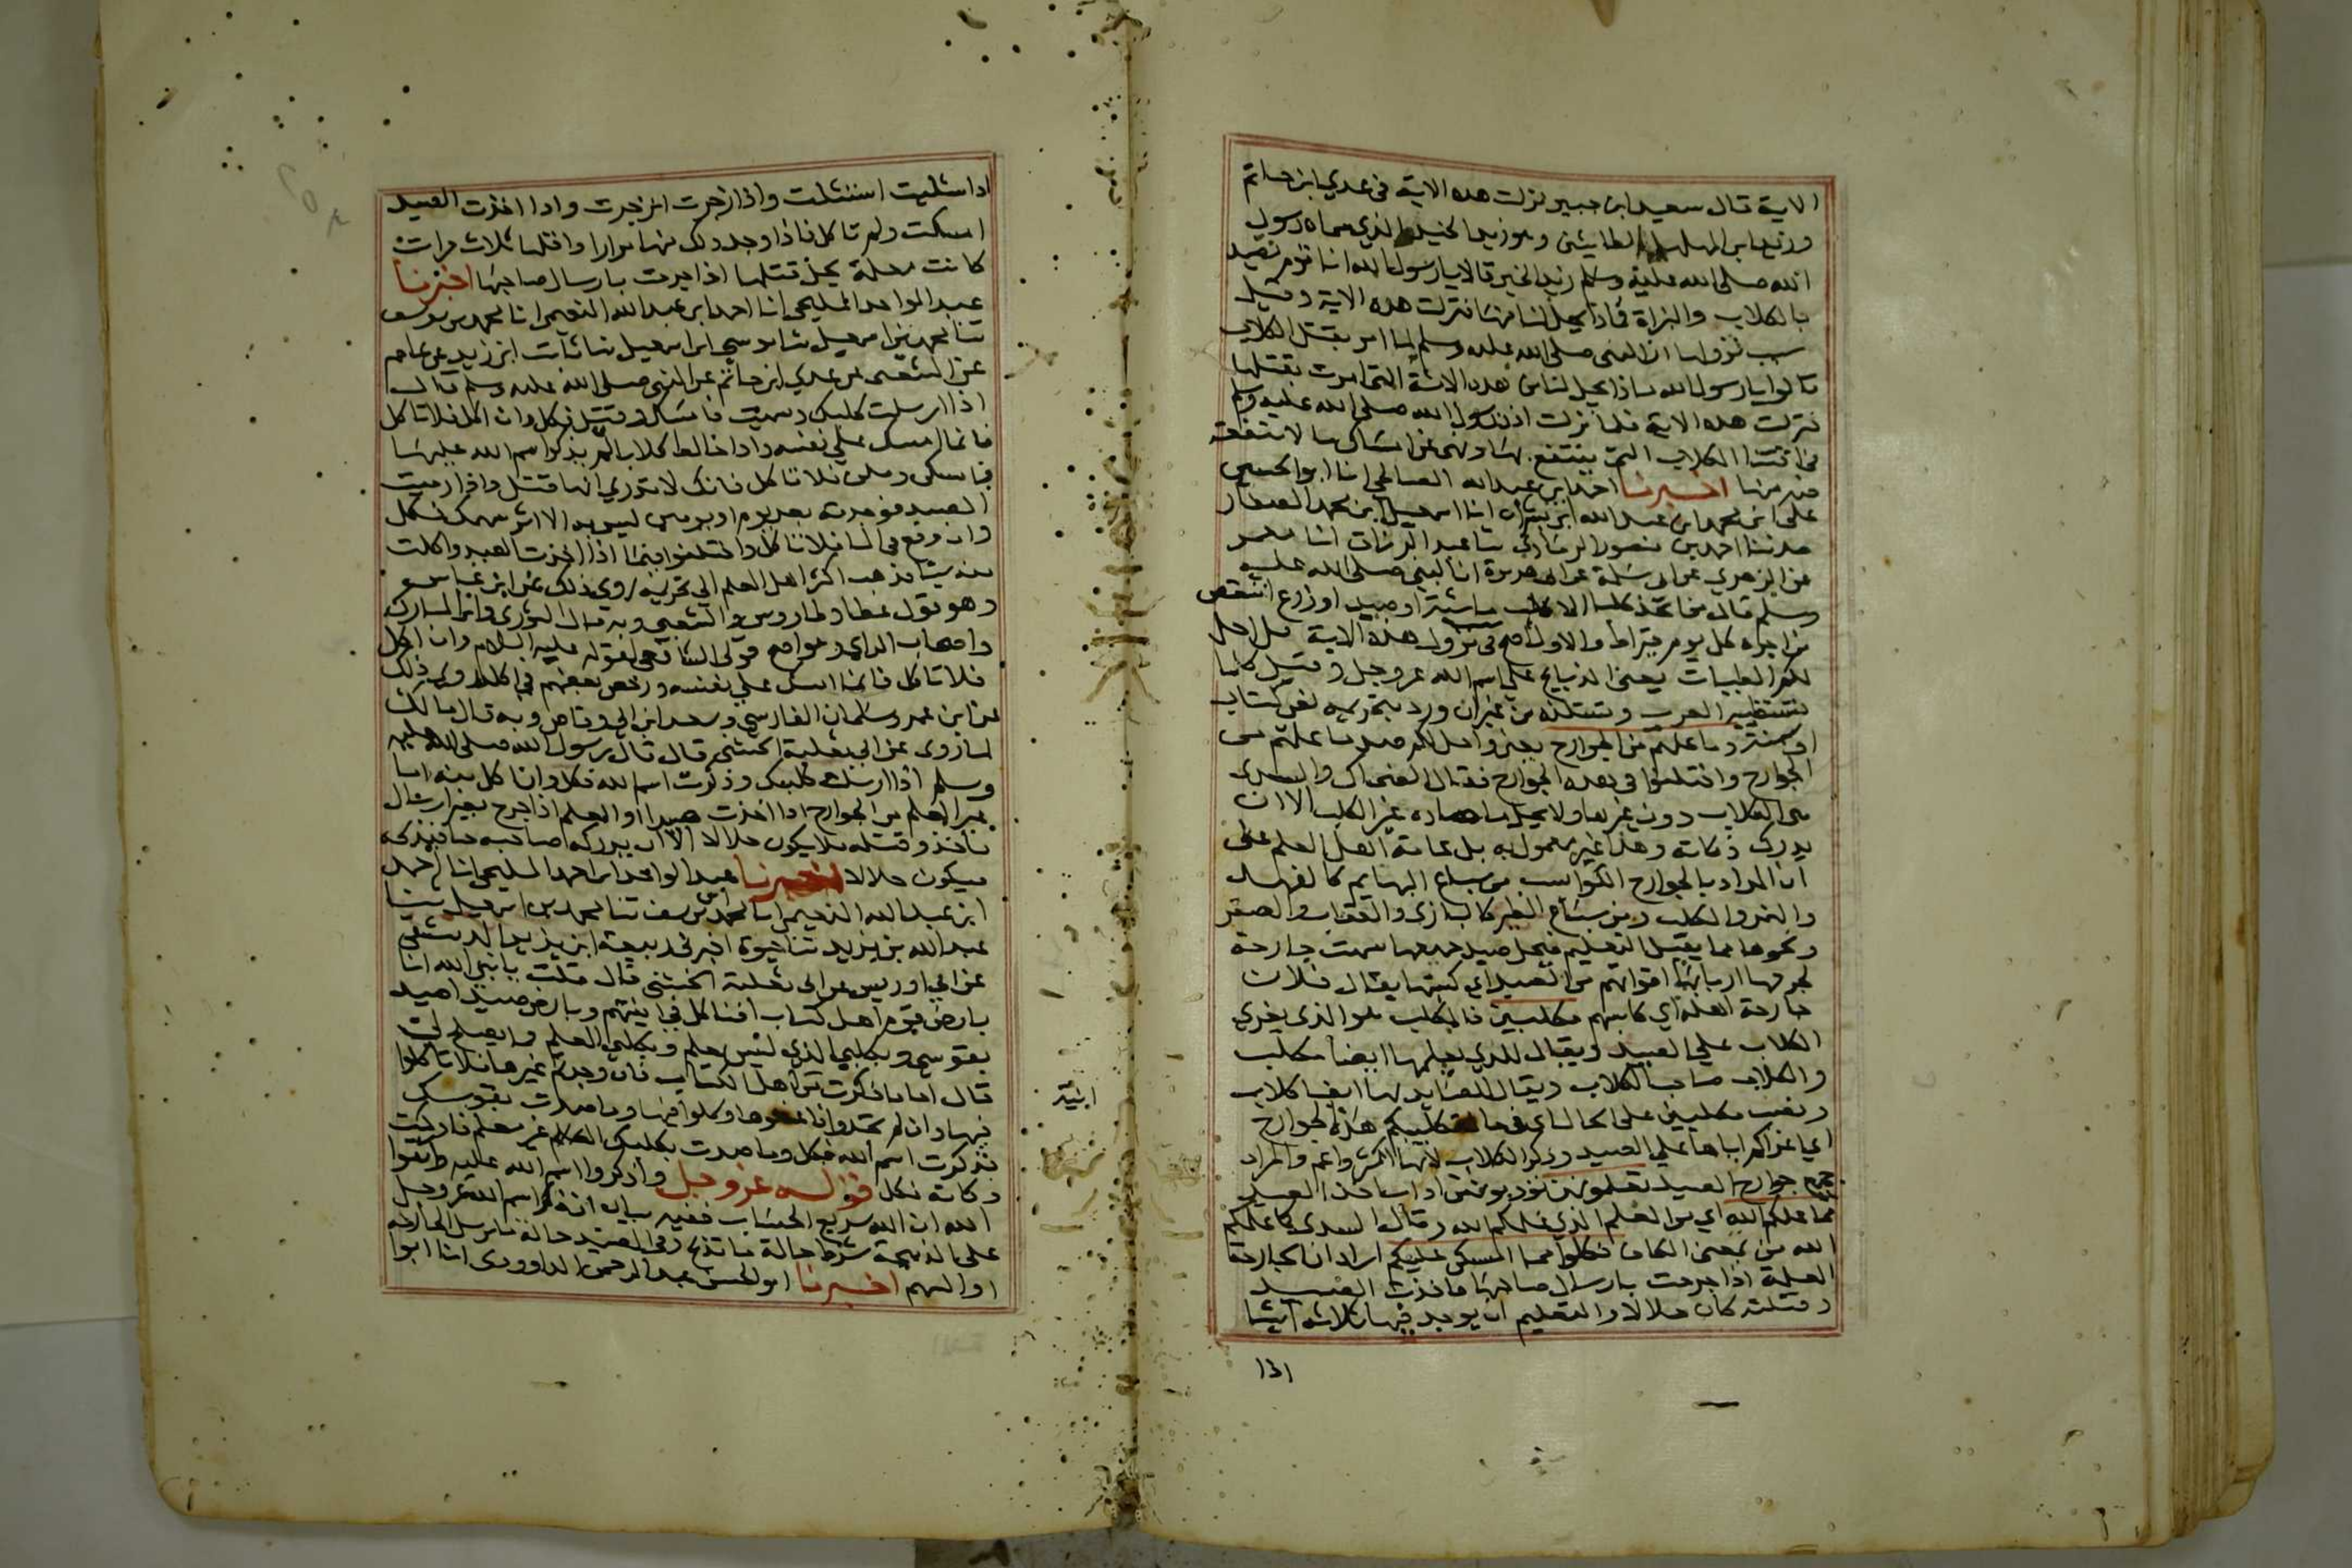 الاية قال سعيد ابن جبير نزلت هذه الاية في عدي ابن حاتم
وزيد ابن المهلهل الطايئين وهو زيد الخيل الذي سماه رسول
الله صلى الله عليه وسلم زيد الخير قالا يا رسول الله انا قوم نصيد
بالكلاب والبزاة فماذا يحل لنا منها فنزلت هذه الاية وقيل
سبب نزولها ان النبى صلى الله عليه وسلم لما امر بقتل الكلاب
قالوا يا رسول الله ماذا يحل لنا من هذه الامة التى امرت بقتلها
فنزلت هذه الاية فلما نزلت اذن رسول الله صلى الله عليه وسلم
في اقتنا الكلاب التى ينتفع بها ونهى عن امساك ما لا منفعة
فيه منها اخبرنا احمد ابن عبد الله الصالحي انا ابو الحسين
على ابن محمد ابن عبد الله ابن بشران انا اسمعيل ابن محمد الصفار
حدثنا احمد بن منصور الرمادي ثنا عبد الرزاق انا معمر
عن الزهري عن ابى سلمة عن ابى هريرة ان النبي صلى الله عليه
وسلم قال من اتخذ كلبا الا كلب ماشية او صيد او زرع انتقص
من اجره كل يوم قيراط والاول اصح في نزول هذه الاية قل احل
لكم الطيبات يعنى الذبايح على اسم الله عز وجل وقيل كلما
تستطيبه العرب وتستلذه من غير ان ورد بتحريمه نص كتاب
او سنة وما علمتم من الجوارح يعنى واحل لكم صيد ما علمتم من
الجوارح واختلفوا في هذه الجوارح فقال الضحاك والسدى
هى الكلاب دون غيرها ولا يحل ما صاده غير الكلب الا ان
يدرك ذكاته وهذا غير معمول به بل عامة اهل العلم على
ان المراد بالجوارح الكواسب من سباع البهايم كالفهد
والنمر والكلب ومن سباع الطير كالبازى والعقاب والصقر
ونحوها مما يقبل التعليم فيحل صيد جميعها سميت جارحة
لجرحها اربابها اقواتهم من الصيد اي كسبها يقال فلان
جارحة اهله اي كاسبهم مكلبين فالمكلب هو الذى يغري
الكلاب على الصيد ويقال للذي يعلمها ايضا مكلب
والكلاب صاحب الكلاب ويقال للصايد بها ايضا كلاب
ونصب مكلبين على الحال اي في حال تكليبكم هذه الجوارح
اي اغراكم اياها على الصيد وذكر الكلاب لانها اكثر واعم والمراد
جميع جوارح الصيد تعلمونهن تؤدبونهن اداب اخذ الصيد
مما علمكم الله اي من العلم الذي علمكم الله وقال السدى كما علمكم
الله من بمعنى الكاف فكلوا مما امسكن عليكم اراد ان الجارحة
المعلمة اذا جرحت بارسال صاحبها فاخذت الصيد
وقتلته كان حلالا والتعليم ان يوجد فيها ثلاثة اشيا
١٤١
اذا اشليت استشلت واذا زجرت انزجرت واذا اخذت الصيد
امسكت ولم تاكل فاذا وجد ذلك منها مرارا واقلها ثلاث مرات
كانت معلمة يحل قتلها اذا جرحت بارسال صاحبها اخبرنا
عبد الواحد المليحي انا احمد ابن عبد الله النعيمي انا محمد بن يوسف
ثنا محمد بن اسمعيل ثنا موسى ابن اسمعيل ثنا ثابت ابن زيد عن عاصم
عن الشعبى عن عدي ابن حاتم عن النبى صلى الله عليه وسلم قال
اذا ارسلت كلبك وسميت فامسك وقتل فكل وان اكل فلا تاكل
فانما امسك على نفسه واذا خالط كلابا لم يذكر اسم الله عليها
فامسكن وقتلن فلا تاكل فانك لا تدري ايها قتل واذا رميت
الصيد فوجدته بعد يوم او يومين ليس به الا اثر سهمك فكل
وان وقع في الما فلا تاكل واختلفوا فيما اذا اخذت الصيد واكلت
منه شيا فذهب اكثر اهل العلم الى تحريمه روي ذلك عن ابن عباس
وهو قول عطا وطاوس والشعبي وبه قال الثوري وابن المبارك
واصحاب الراي وهو اصح قولى الشافعي لقوله عليه السلام وان اكل
فلا تاكل فانما امسك على نفسه ورخص بعضهم في اكله روي ذلك
عن ابن عمر وسلمان الفارسي وسعد ابن ابي وقاص وبه قال مالك
لما روى عن ابي ثعلبة الخشنى قال قال رسول الله صلى الله عليه
وسلم اذا ارسلت كلبك وذكرت اسم الله فكل وان اكل منه اما
غير المعلم من الجوارح اذا اخذت صيدا او المعلم اذا جرح بغير ارسال
فاخذ وقتله فلا يكون حلالا الا ان يدركه صاحبه حيا فيذبحه
فيكون حلالا اخبرنا عبد الواحد ابن احمد المليحي انا احمد
ابن عبد الله النعيمي انا محمد بن يوسف ثنا محمد بن اسمعيل ثنا
عبد الله بن يزيد ثنا حيوة اخبرني ربيعة ابن يزيد الدمشقي
عن ابي ادريس عن ابى ثعلبة الخشنى قال قلت يا نبي الله انا
بارض قوم اهل كتاب افناكل في انيتهم وبارض صيد اصيد
بقوسي وبكلبي الذي ليس بمعلم وبكلبي المعلم فما يصلح لي
قال اما ما ذكرت من اهل الكتاب فان وجدتم غيرها فلا تاكلوا
انية
فيها وان لم تجدوا فاغسلوها وكلوا فيها وما صدت بقوسك
فذكرت اسم الله فكل وما صدت بكلبك غير معلم فادركت
ذكاته فكل قوله عز وجل واذكروا اسم الله عليه واتقوا
الله ان الله سريع الحساب ففيه بيان ان ذكر اسم الله عز وجل
على الذبيحة شرط حالة ما تذبح وفي الصيد حالة ما ترسل الجارحة
او السهم اخبرنا ابو الحسن عبد الرحمن الداوودى انا ابوا